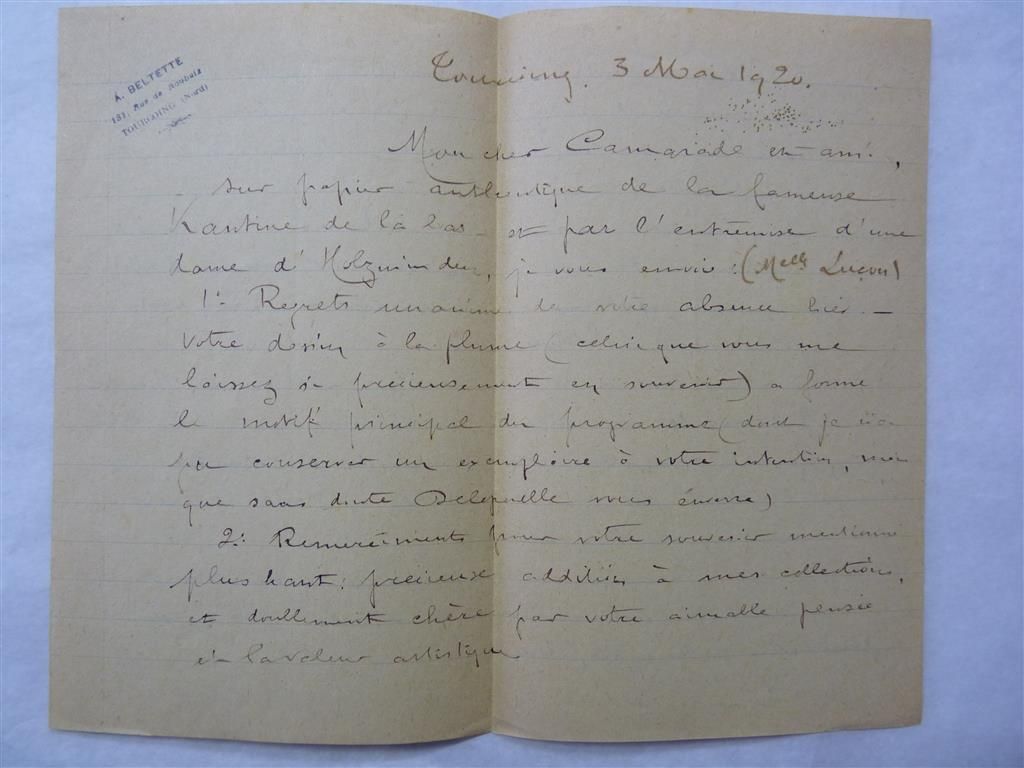 A. BELTETTE
181, Rue de Roubaix
TOURCOING (Nord)
Tourcoing. 3 Mai 1920.
Mon cher Camarade et ami,
Sur papier authentique de la fameuse
Kantine de là bas - et par l'entremise d'une
dame d'Holzminden, je vous envoie : (Melle Luçon)
1º: Regrets unanimes de votre absence hier -
Votre dessin à la plume (celui que vous me
laissez si précieusement en souvenir) a formé
le motif principal du programme (dont je n'ai
pu conserver un exemplaire à votre intention, mais
que sans doute vous enverra)
2º: Remerciements pour votre souvenir mentionné
plus haut : précieuse addition à mes collections,
et doublement chère par votre aimable pensée
et la valeur artistique